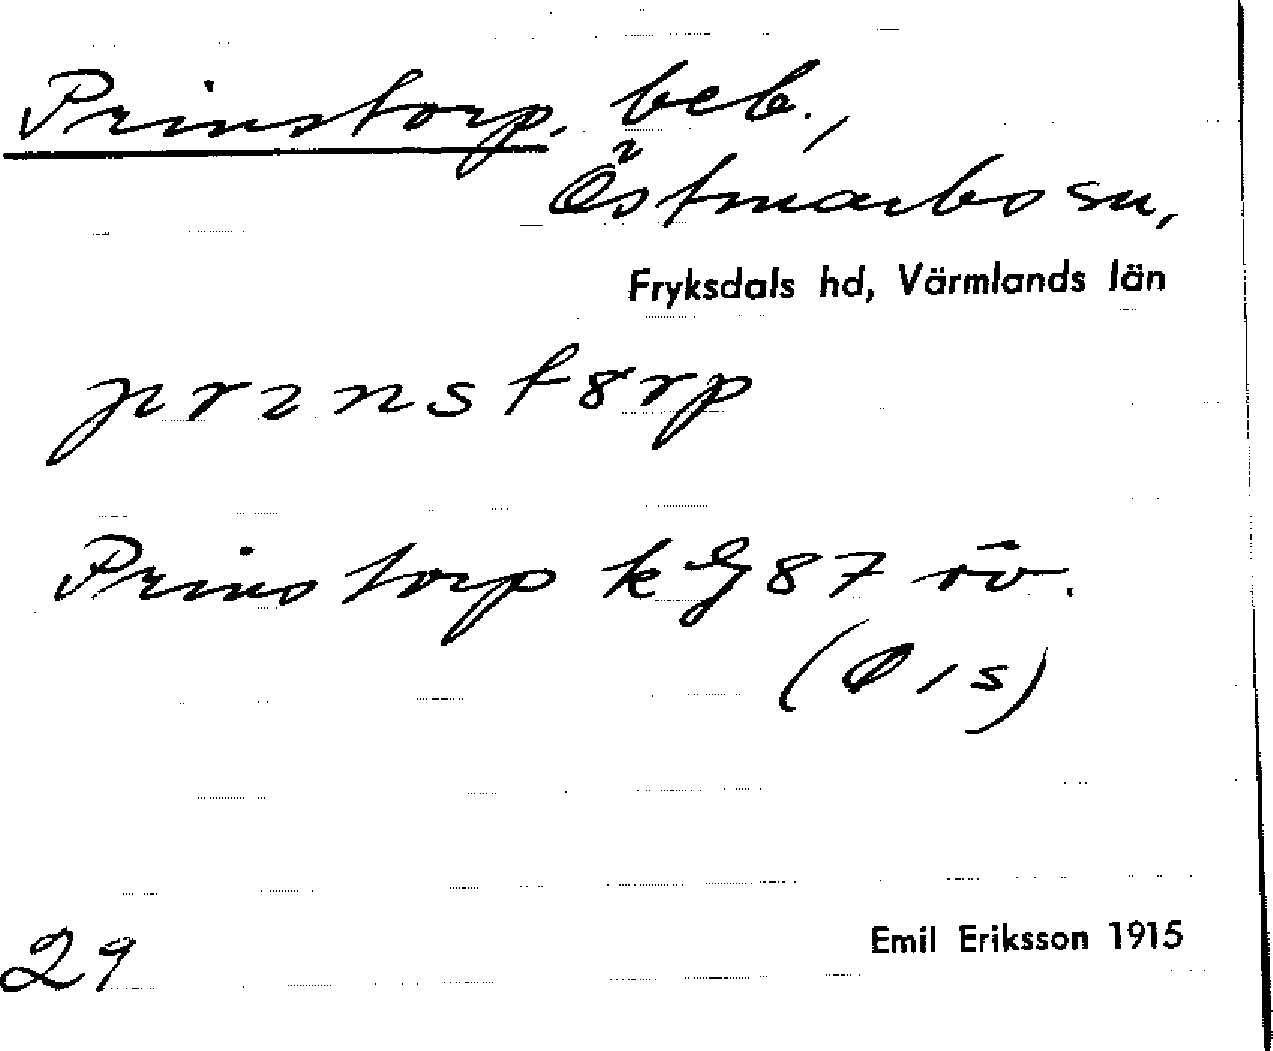 Prinstorp. beb.,
Östmarks sn,
Fryksdals hd, Värmlands län
prɪnstɞrp
Prinstorp kG 87 rö.
(Ö 1 s)
29
Emil Eriksson 1915